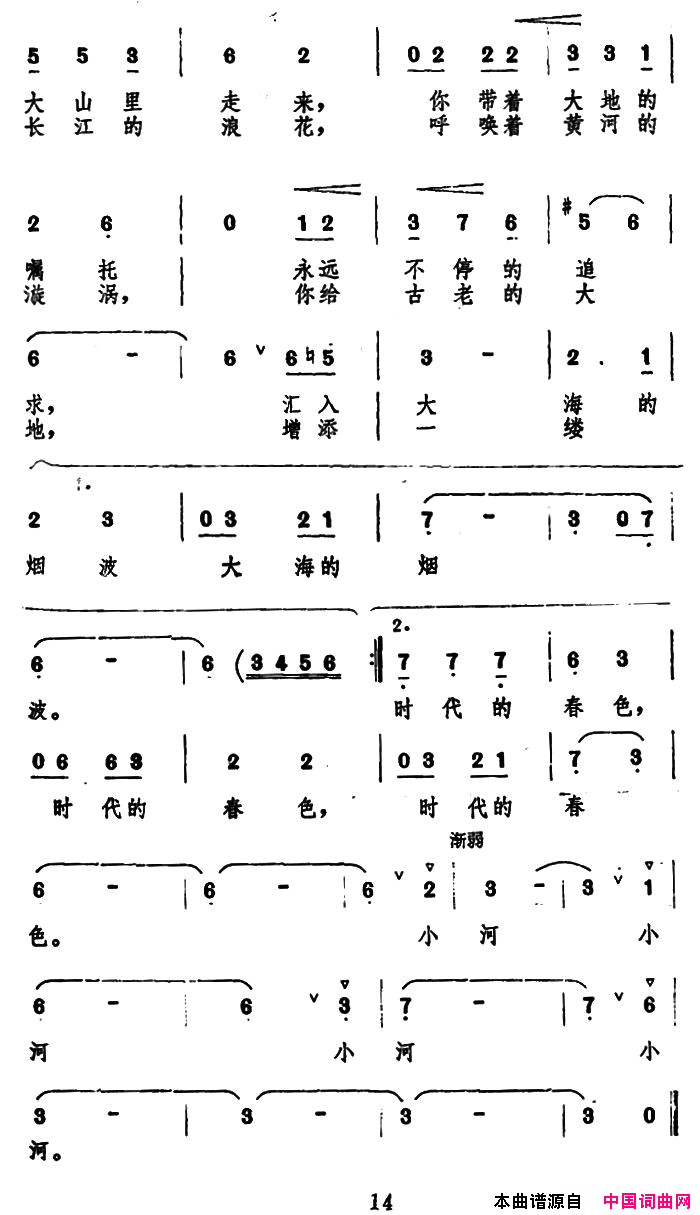 5 5 3 | 6 2 | 0 2 2 2 | 3 3 1 |
大 山 里 走 来， 你 带着 大 地 的
长 江 的 浪 花， 呼 唤着 黄 河 的
2 6 | 0 1 2 | 3 7 6 | #5 6 |
嘱 托 永远 不 停 的 追
漩 涡， 你给 古 老 的 大
6 - | 6 ∨ 6 ♮5 | 3 - | 2 . 1 |
求， 汇 入 大 海 的
地， 增 添 一 缕
1.
2 3 | 0 3 2 1 | 7 - | 3 0 7 |
烟 波 大 海的 烟
2.
6 - | 6 ( 3 4 5 6 :| 7 7 7 | 6 3 |
波。 时 代 的 春 色，
0 6 6 3 | 2 2 | 0 3 2 1 | 7 3 |
时 代的 春 色， 时 代的 春
渐弱
6 - | 6 - | 6 ∨ 2 | 3 - | 3 ∨ 1 |
色。 小 河 小
6 - | 6 ∨ 3 | 7 - | 7 ∨ 6 |
河 小 河 小
3 - | 3 - | 3 - | 3 0 ‖
河。
14
本曲谱源自 中国词曲网